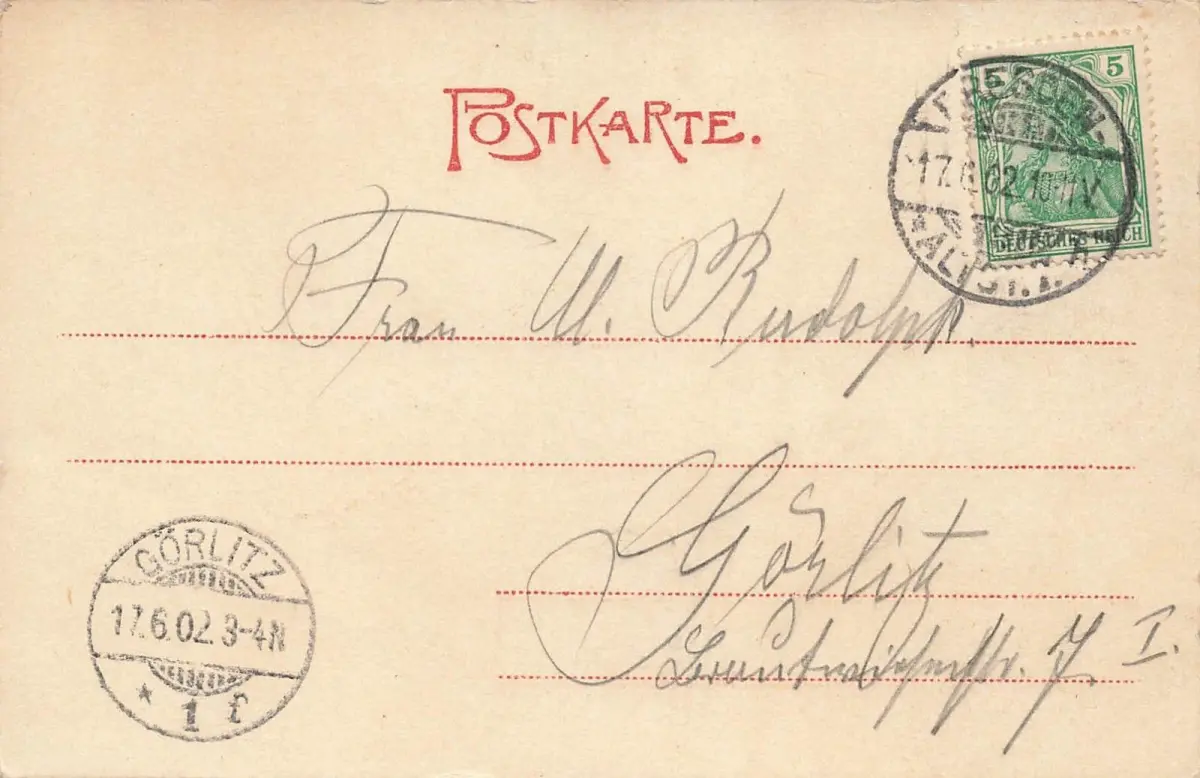 POSTKARTE.
5 5
DRESDEN-
17.6.02.10-11V.
*ALTST.1.
DEUTSCHES REICH
Frau M. Rudolph.
Görlitz
Brautwiesenstr. 7. I.
GÖRLITZ
17.6.02.3-4N
* 1 f